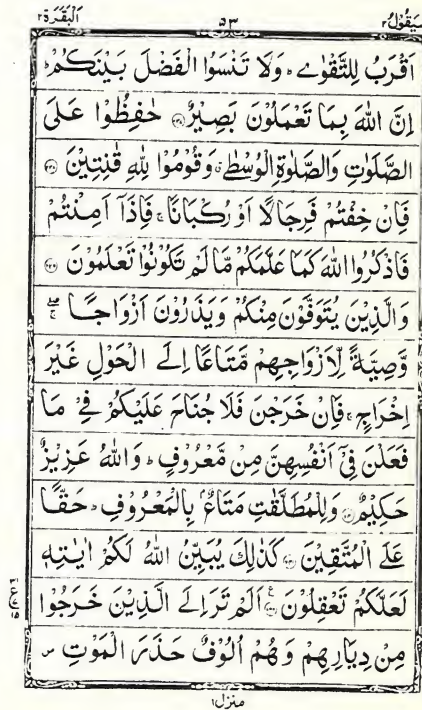 اَلْبَقَرَة ٢ ٥٣ سَيَقُوْلُ ٢
اَقْرَبُ لِلتَّقْوٰے ؕ وَلَا تَنْسَوُا الْفَضْلَ بَيْنَكُمْ ؕ
اِنَّ اللّٰهَ بِمَا تَعْمَلُوْنَ بَصِيْرٌ ۝ حٰفِظُوْا عَلَى
الصَّلَوٰتِ وَالصَّلٰوةِ الْوُسْطٰى ۗ وَقُوْمُوْا لِلّٰهِ قٰنِتِيْنَ ۝
فَاِنْ خِفْتُمْ فَرِجَالًا اَوْ رُكْبَانًا ۚ فَاِذَآ اَمِنْتُمْ
فَاذْكُرُوا اللّٰهَ كَمَا عَلَّمَكُمْ مَّا لَمْ تَكُوْنُوْا تَعْلَمُوْنَ ۝
وَالَّذِيْنَ يُتَوَفَّوْنَ مِنْكُمْ وَيَذَرُوْنَ اَزْوَاجًا ۖۚ
وَّصِيَّةً لِّاَزْوَاجِهِمْ مَّتَاعًا اِلَے الْحَوْلِ غَيْرَ
اِخْرَاجٍ ۚ فَاِنْ خَرَجْنَ فَلَا جُنَاحَ عَلَيْكُمْ فِيْ مَا
فَعَلْنَ فِيْٓ اَنْفُسِهِنَّ مِنْ مَّعْرُوْفٍ ؕ وَاللّٰهُ عَزِيْزٌ
حَكِيْمٌ ۝ وَلِلْمُطَلَّقٰتِ مَتَاعٌۢ بِالْمَعْرُوْفِ ؕ حَقًّا
عَلَے الْمُتَّقِيْنَ ۝ كَذٰلِكَ يُبَيِّنُ اللّٰهُ لَكُمْ اٰيٰتِهٖ
لَعَلَّكُمْ تَعْقِلُوْنَ ۝ اَلَمْ تَرَ اِلَے الَّذِيْنَ خَرَجُوْا
مِنْ دِيَارِهِمْ وَهُمْ اُلُوْفٌ حَذَرَ الْمَوْتِ ۪
منزل ١